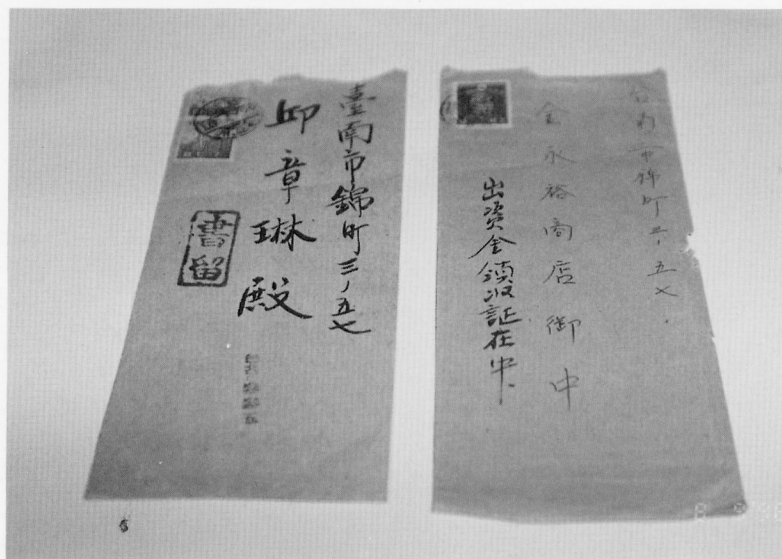 臺南市錦町三ノ五七
邱章琳殿
書留
台南市錦町三ノ五七
金永裕商店御中
出資金領収証在中